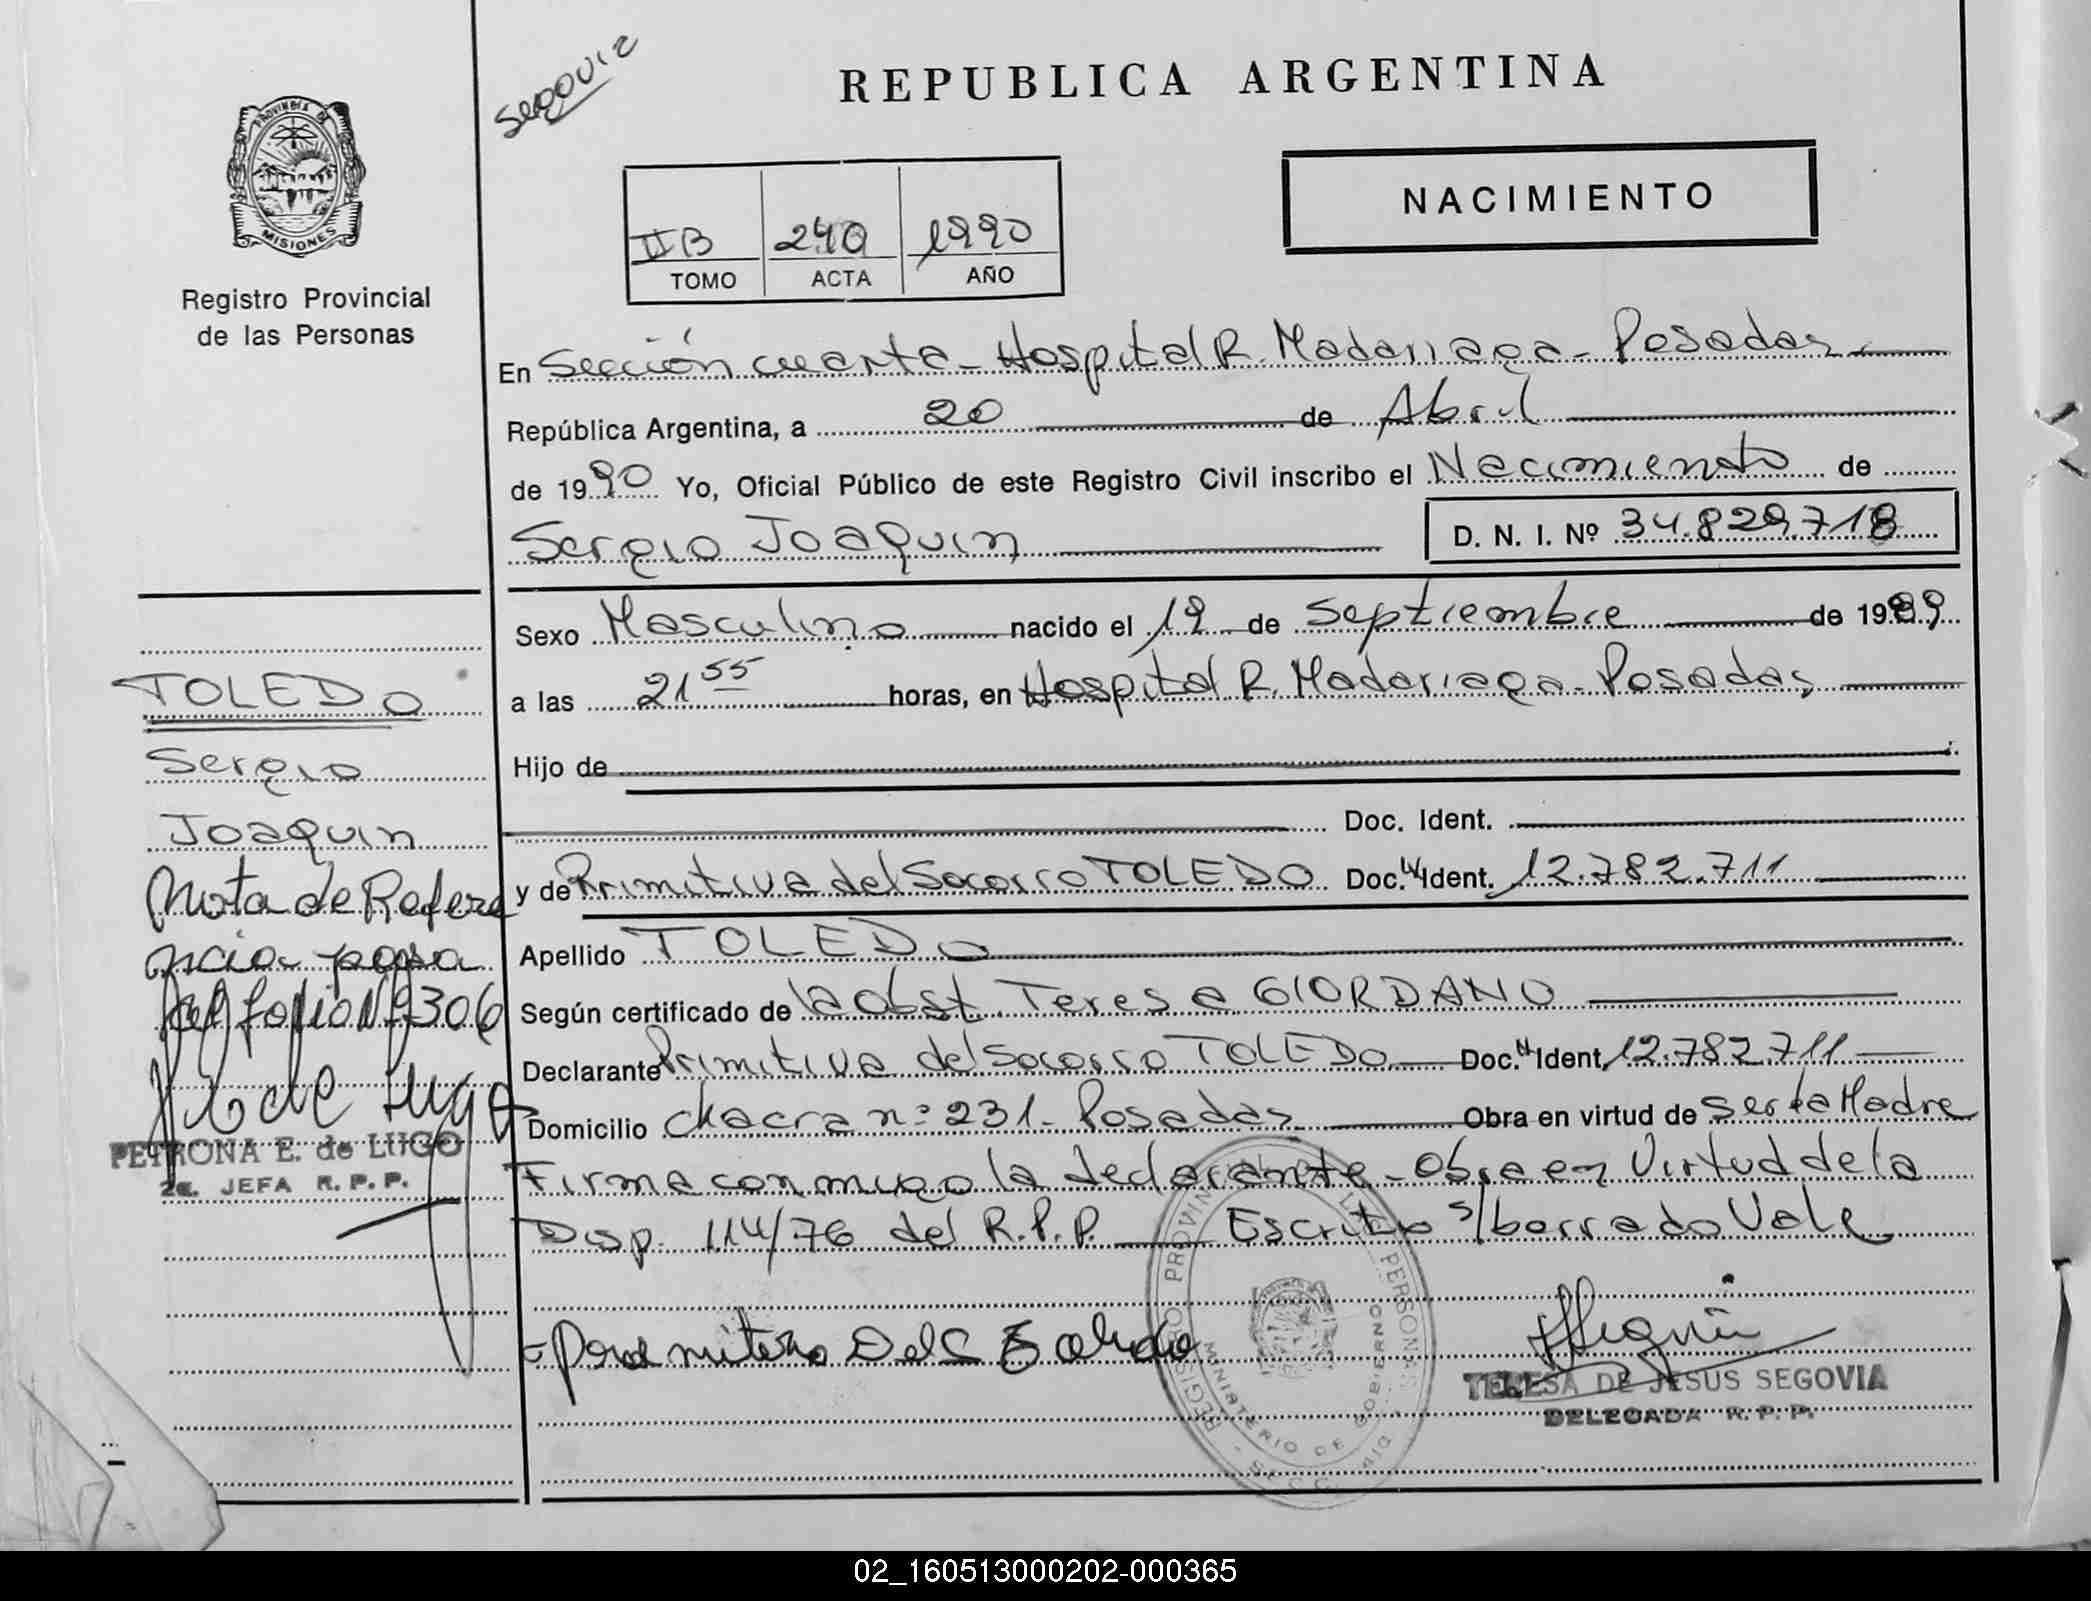 REPUBLICA ARGENTINA
PROVINCIA DE
MISIONES
Registro Provincial
de las Personas
NACIMIENTO
IIB 240 1990
TOMO ACTA AÑO
En Sección cuarta - Hospital R. Madariaga - Posadas
República Argentina, a 20 de Abril
de 1990 Yo, Oficial Público de este Registro Civil inscribo el Nacimiento de
Sergio Joaquin D. N. I. Nº 34.829.718
Sexo Masculino nacido el 19 de Septiembre de 1989
a las 21 55 horas, en Hospital R. Madariaga - Posadas
Hijo de
Doc. Ident.
y de Primitiva del Socorro TOLEDO Doc. Ident. 12.782.711
Apellido TOLEDO
Según certificado de la obst. Teresa GIORDANO
Declarante Primitiva del Socorro TOLEDO Doc. Ident. 12.782.711
Domicilio chacra nº 231 - Posadas Obra en virtud de ser la Madre
Firma conmigo la declarante - Obra en Virtud de la
Disp. 114/76 del R.P.P. Escrito s/borrado Vale
TERESA DE JESUS SEGOVIA
DELEGADA R. P. P.
REGISTRO PROVINCIAL DE LAS PERSONAS
MINISTERIO DE GOBIERNO
TOLEDO
Sergio
Joaquin
Nota de Refere
ncia pasa
al folio Nº 306
PETRONA E. de LUGO
2a. JEFA R. P. P.
02_160513000202-000365